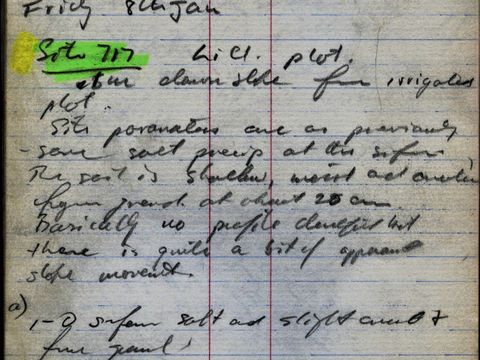 Friday 8th Jan
Site 717 hill plot.
down slope from irrigated
plot.
Site parameters are as previously
- some salt precip at the surface
The soil is shallow, moist and
from gravel at about 20 cm
Basically no profile development but
there is quite a bit of apparent
slope movement.
a)
1-0 surface salt and slight crust &
fine gravel